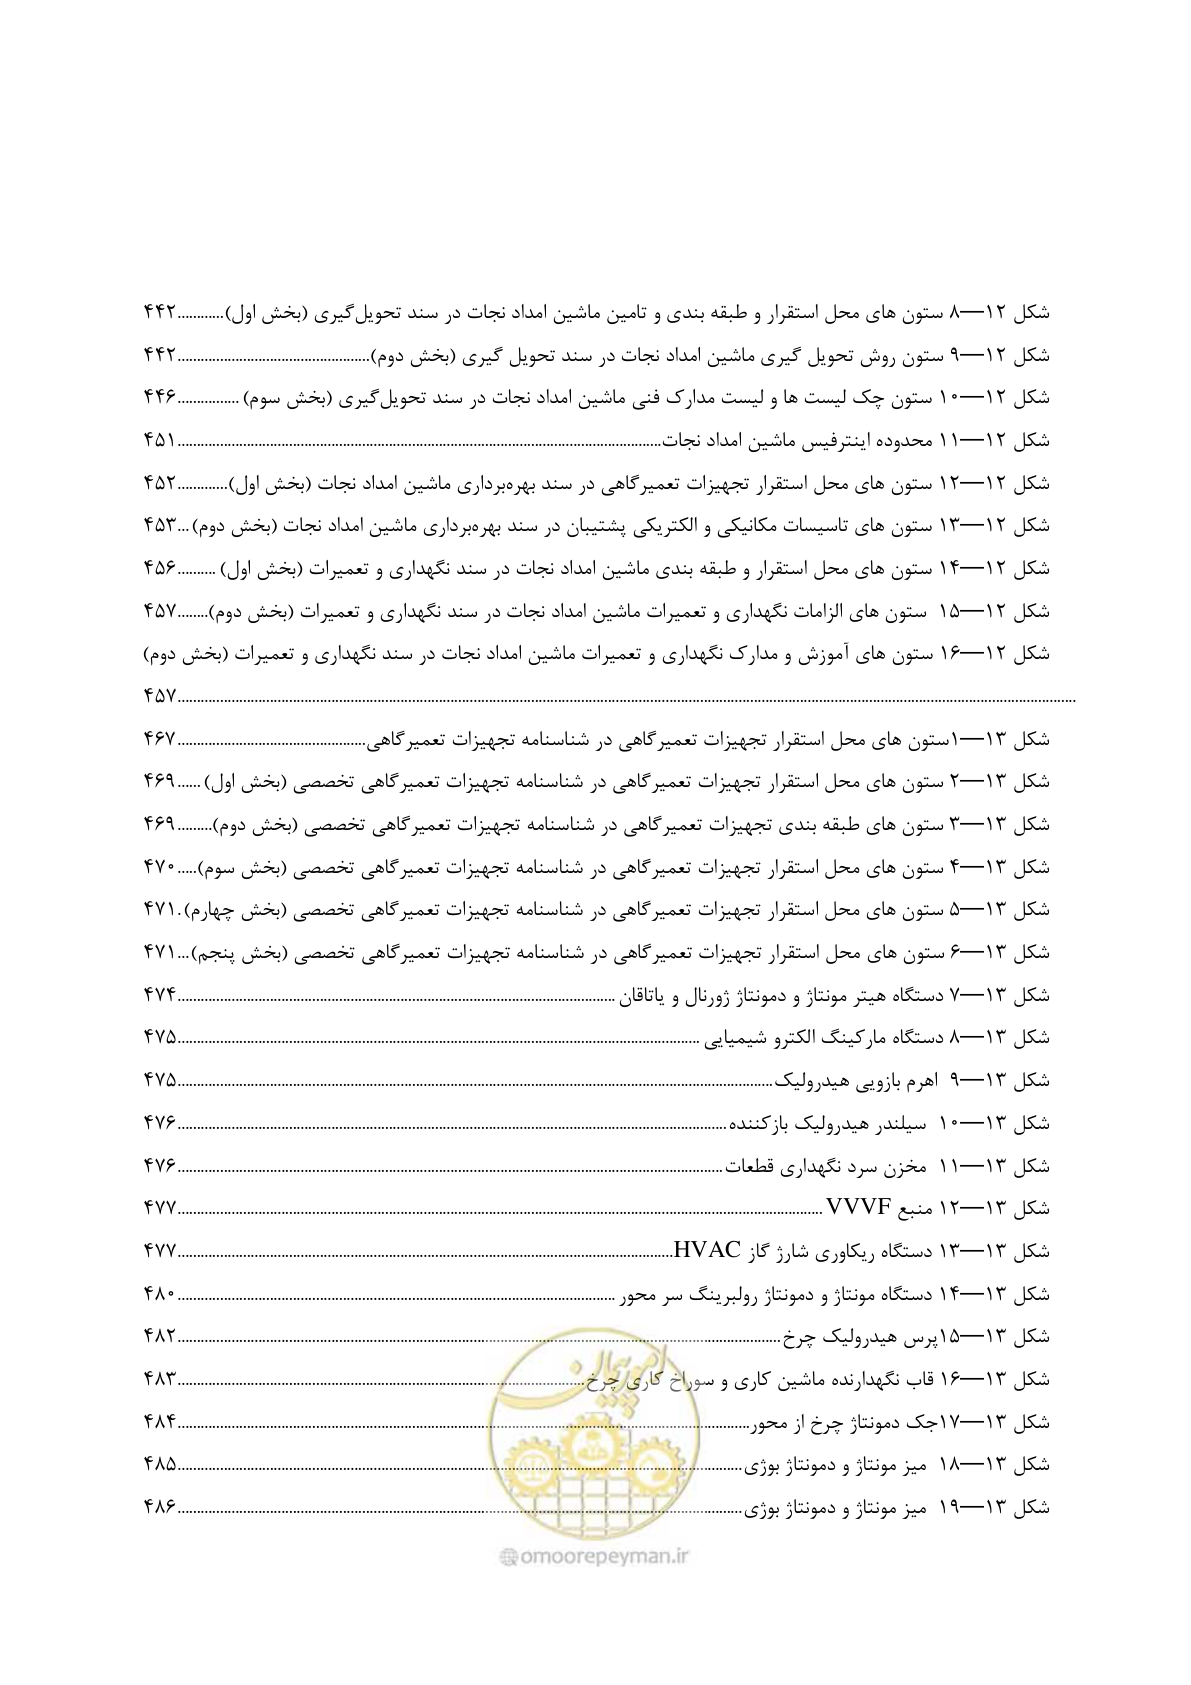 شکل ۱۲—۸ ستون های محل استقرار و طبقه بندی و تامین ماشین امداد نجات در سند تحویل‌گیری (بخش اول)...........۴۴۲
شکل ۱۲—۹ ستون روش تحویل گیری ماشین امداد نجات در سند تحویل گیری (بخش دوم)..................................................۴۴۲
شکل ۱۲—۱۰ ستون چک لیست ها و لیست مدارک فنی ماشین امداد نجات در سند تحویل‌گیری (بخش سوم)................۴۴۶
شکل ۱۲—۱۱ محدوده اینترفیس ماشین امداد نجات..............................................................۴۵۱
شکل ۱۲—۱۲ ستون های محل استقرار تجهیزات تعمیرگاهی در سند بهره‌برداری ماشین امداد نجات (بخش اول).............۴۵۲
شکل ۱۲—۱۳ ستون های تاسیسات مکانیکی و الکتریکی پشتیبان در سند بهره‌برداری ماشین امداد نجات (بخش دوم)...۴۵۳
شکل ۱۲—۱۴ ستون های محل استقرار و طبقه بندی ماشین امداد نجات در سند نگهداری و تعمیرات (بخش اول)..........۴۵۶
شکل ۱۲—۱۵ ستون های الزامات نگهداری و تعمیرات ماشین امداد نجات در سند نگهداری و تعمیرات (بخش دوم)........۴۵۷
شکل ۱۲—۱۶ ستون های آموزش و مدارک نگهداری و تعمیرات ماشین امداد نجات در سند نگهداری و تعمیرات (بخش دوم)
..............................................................۴۵۷
شکل ۱۳—۱ستون های محل استقرار تجهیزات تعمیرگاهی در شناسنامه تجهیزات تعمیرگاهی................................................۴۶۷
شکل ۱۳—۲ ستون های محل استقرار تجهیزات تعمیرگاهی در شناسنامه تجهیزات تعمیرگاهی تخصصی (بخش اول)......۴۶۹
شکل ۱۳—۳ ستون های طبقه بندی تجهیزات تعمیرگاهی در شناسنامه تجهیزات تعمیرگاهی تخصصی (بخش دوم).........۴۶۹
شکل ۱۳—۴ ستون های محل استقرار تجهیزات تعمیرگاهی در شناسنامه تجهیزات تعمیرگاهی تخصصی (بخش سوم).....۴۷۰
شکل ۱۳—۵ ستون های محل استقرار تجهیزات تعمیرگاهی در شناسنامه تجهیزات تعمیرگاهی تخصصی (بخش چهارم).۴۷۱
شکل ۱۳—۶ ستون های محل استقرار تجهیزات تعمیرگاهی در شناسنامه تجهیزات تعمیرگاهی تخصصی (بخش پنجم)...۴۷۱
شکل ۱۳—۷ دستگاه هیتر مونتاژ و دمونتاژ ژورنال و یاتاقان..............................................................۴۷۴
شکل ۱۳—۸ دستگاه مارکینگ الکترو شیمیایی..............................................................۴۷۵
شکل ۱۳—۹ اهرم بازویی هیدرولیک..............................................................۴۷۵
شکل ۱۳—۱۰ سیلندر هیدرولیک بازکننده..............................................................۴۷۶
شکل ۱۳—۱۱ مخزن سرد نگهداری قطعات..............................................................۴۷۶
شکل ۱۳—۱۲ منبع VVVF..............................................................۴۷۷
شکل ۱۳—۱۳ دستگاه ریکاوری شارژ گاز HVAC..............................................................۴۷۷
شکل ۱۳—۱۴ دستگاه مونتاژ و دمونتاژ رولبرینگ سر محور..............................................................۴۸۰
شکل ۱۳—۱۵پرس هیدرولیک چرخ..............................................................۴۸۲
شکل ۱۳—۱۶ قاب نگهدارنده ماشین کاری و سوراخ کاری چرخ..............................................................۴۸۳
شکل ۱۳—۱۷جک دمونتاژ چرخ از محور..............................................................۴۸۴
شکل ۱۳—۱۸ میز مونتاژ و دمونتاژ بوژی..............................................................۴۸۵
شکل ۱۳—۱۹ میز مونتاژ و دمونتاژ بوژی..............................................................۴۸۶
امور پیمان
@omoorepeyman.ir